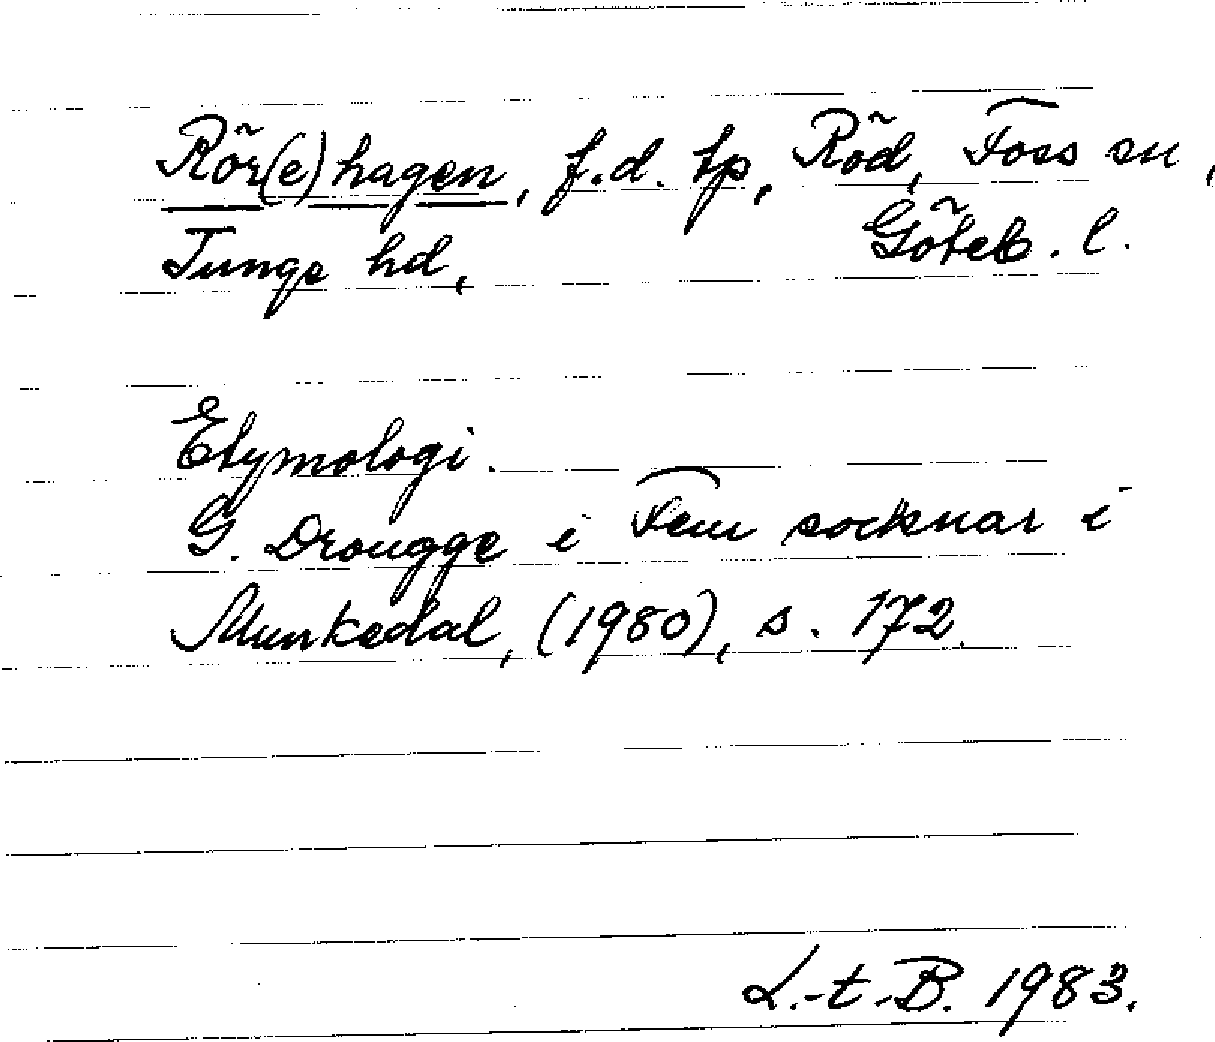 Rör(e)hagen, f.d. tp, Röd, Foss sn,
Tunge hd, Göteb. l.
Etymologi.
G. Drougge i Fem socknar i
Munkedal, (1980), s. 172.
L.-t.-B. 1983.